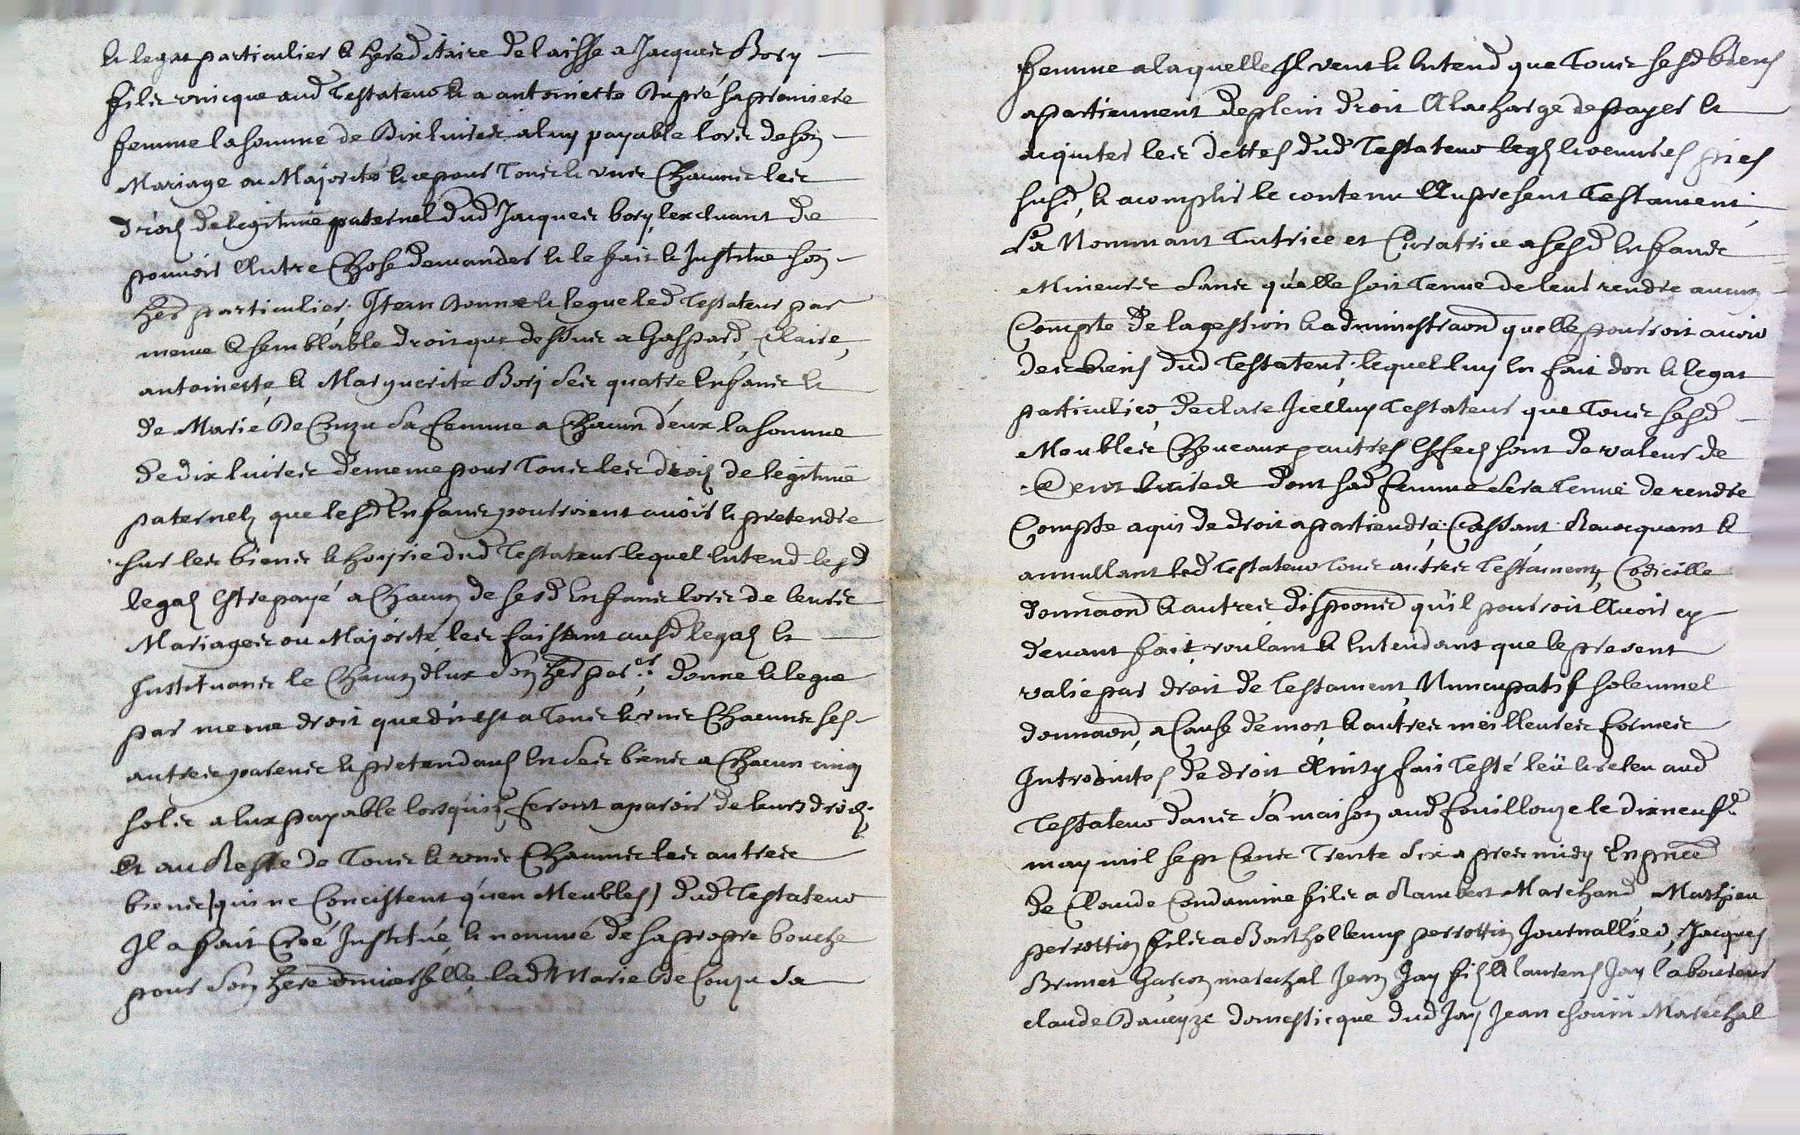 et legat particulier et hereditaire delaisse a Jacques Bory
fils unicque aud testateur et a antoinette Dupré sa premiere
femme la somme de dix luires a luy payable lors de son
Mariage ou Majorité et ce pour tous et uns Chacuns les
drois de legitime paternel dud Jacques bory, lexcluant de
pouvoir Autre Chose demander et le fait et Institue son
her particulier, Item donne et legue led testateur par
meme et semblable droit que dessus a Gaspard, Claire,
antoinette, et Marguerite Bory ses quatre enfans et
de Marie De Couzu sa femme a Chacun d'eux la somme
de dix luires de meme pour tous les drois de legitime
paternelz que lesd Enfans pourroient avoir et pretendre
sur les biens et hoyrie dud testateur lequel entend lesd
legas estre payé a Chacun de sesd Enfans lors de leurs
Mariages ou Majorité, les faisant ausd legas et
Instituans le Chacun d'eux son her par.er donne et legue
par meme droit que dit est a tous et uns Chacuns ses
autres parens et pretendans en ses biens a Chacun cinq
sols a eux payable lorsquilz feront aparoir de leurs drois,
et au Reste de tous et uns Chacuns les autres
biens (qui ne Concistent qu'en Meubles) dud testateur
Il a fait Créé Institué, et nommé de sa propre bouche
pour son here universelle lad Marie De Couzu sa
femme a laquelle Il veut et Entend que tous sesd biens
apartiennent de plein droit A la charge de payer et
aquiter les dettes dud testateur legs et oeuvres pies
susd, et acomplir le contenu Au present testament,
La Nommant tutrice et Curatrice a sesd Enfans
Mineurs sans qu'elle soit tenue de leur rendre aucun
Compte de la gestion et administraond quelle pourroit avoir
des biens dud testateur, lequel luy en fait don et legat
particulier, declare Icelluy testateur que tous sesd
Meubles Chevaux autres Effects sont de valeur de
Cent luires dont sad femme sera tenue de rendre
Compte a qui de droit apartiendra, Cassant Revocquant et
annullant led testateur tous autres testamentz, Codicille
donnaond et autres dispoons qu'il pourroit Avoir cy
devant fait, voulant et Entendant que le present
valie par droit de testament Nuncupatif solennel
donnaond, a Cause de mort, et autres meilleures formes
Introduites de droit Ainsy fait testé leü et releu aud
testateur dans sa maison aud fouillouze le dix neufe
may mil sept Cens trente six apres midy En prnce
de Claude Condamine fils a Rambert Marchand, Mathieu
perrottin fils a Barthollemy perrottin Journallier, Jacques
Brunet garcon marechal Jean Jay fils A laurens Jay laboureur
claude Daveyze domesticque dud Jay Jean chouin Marechal